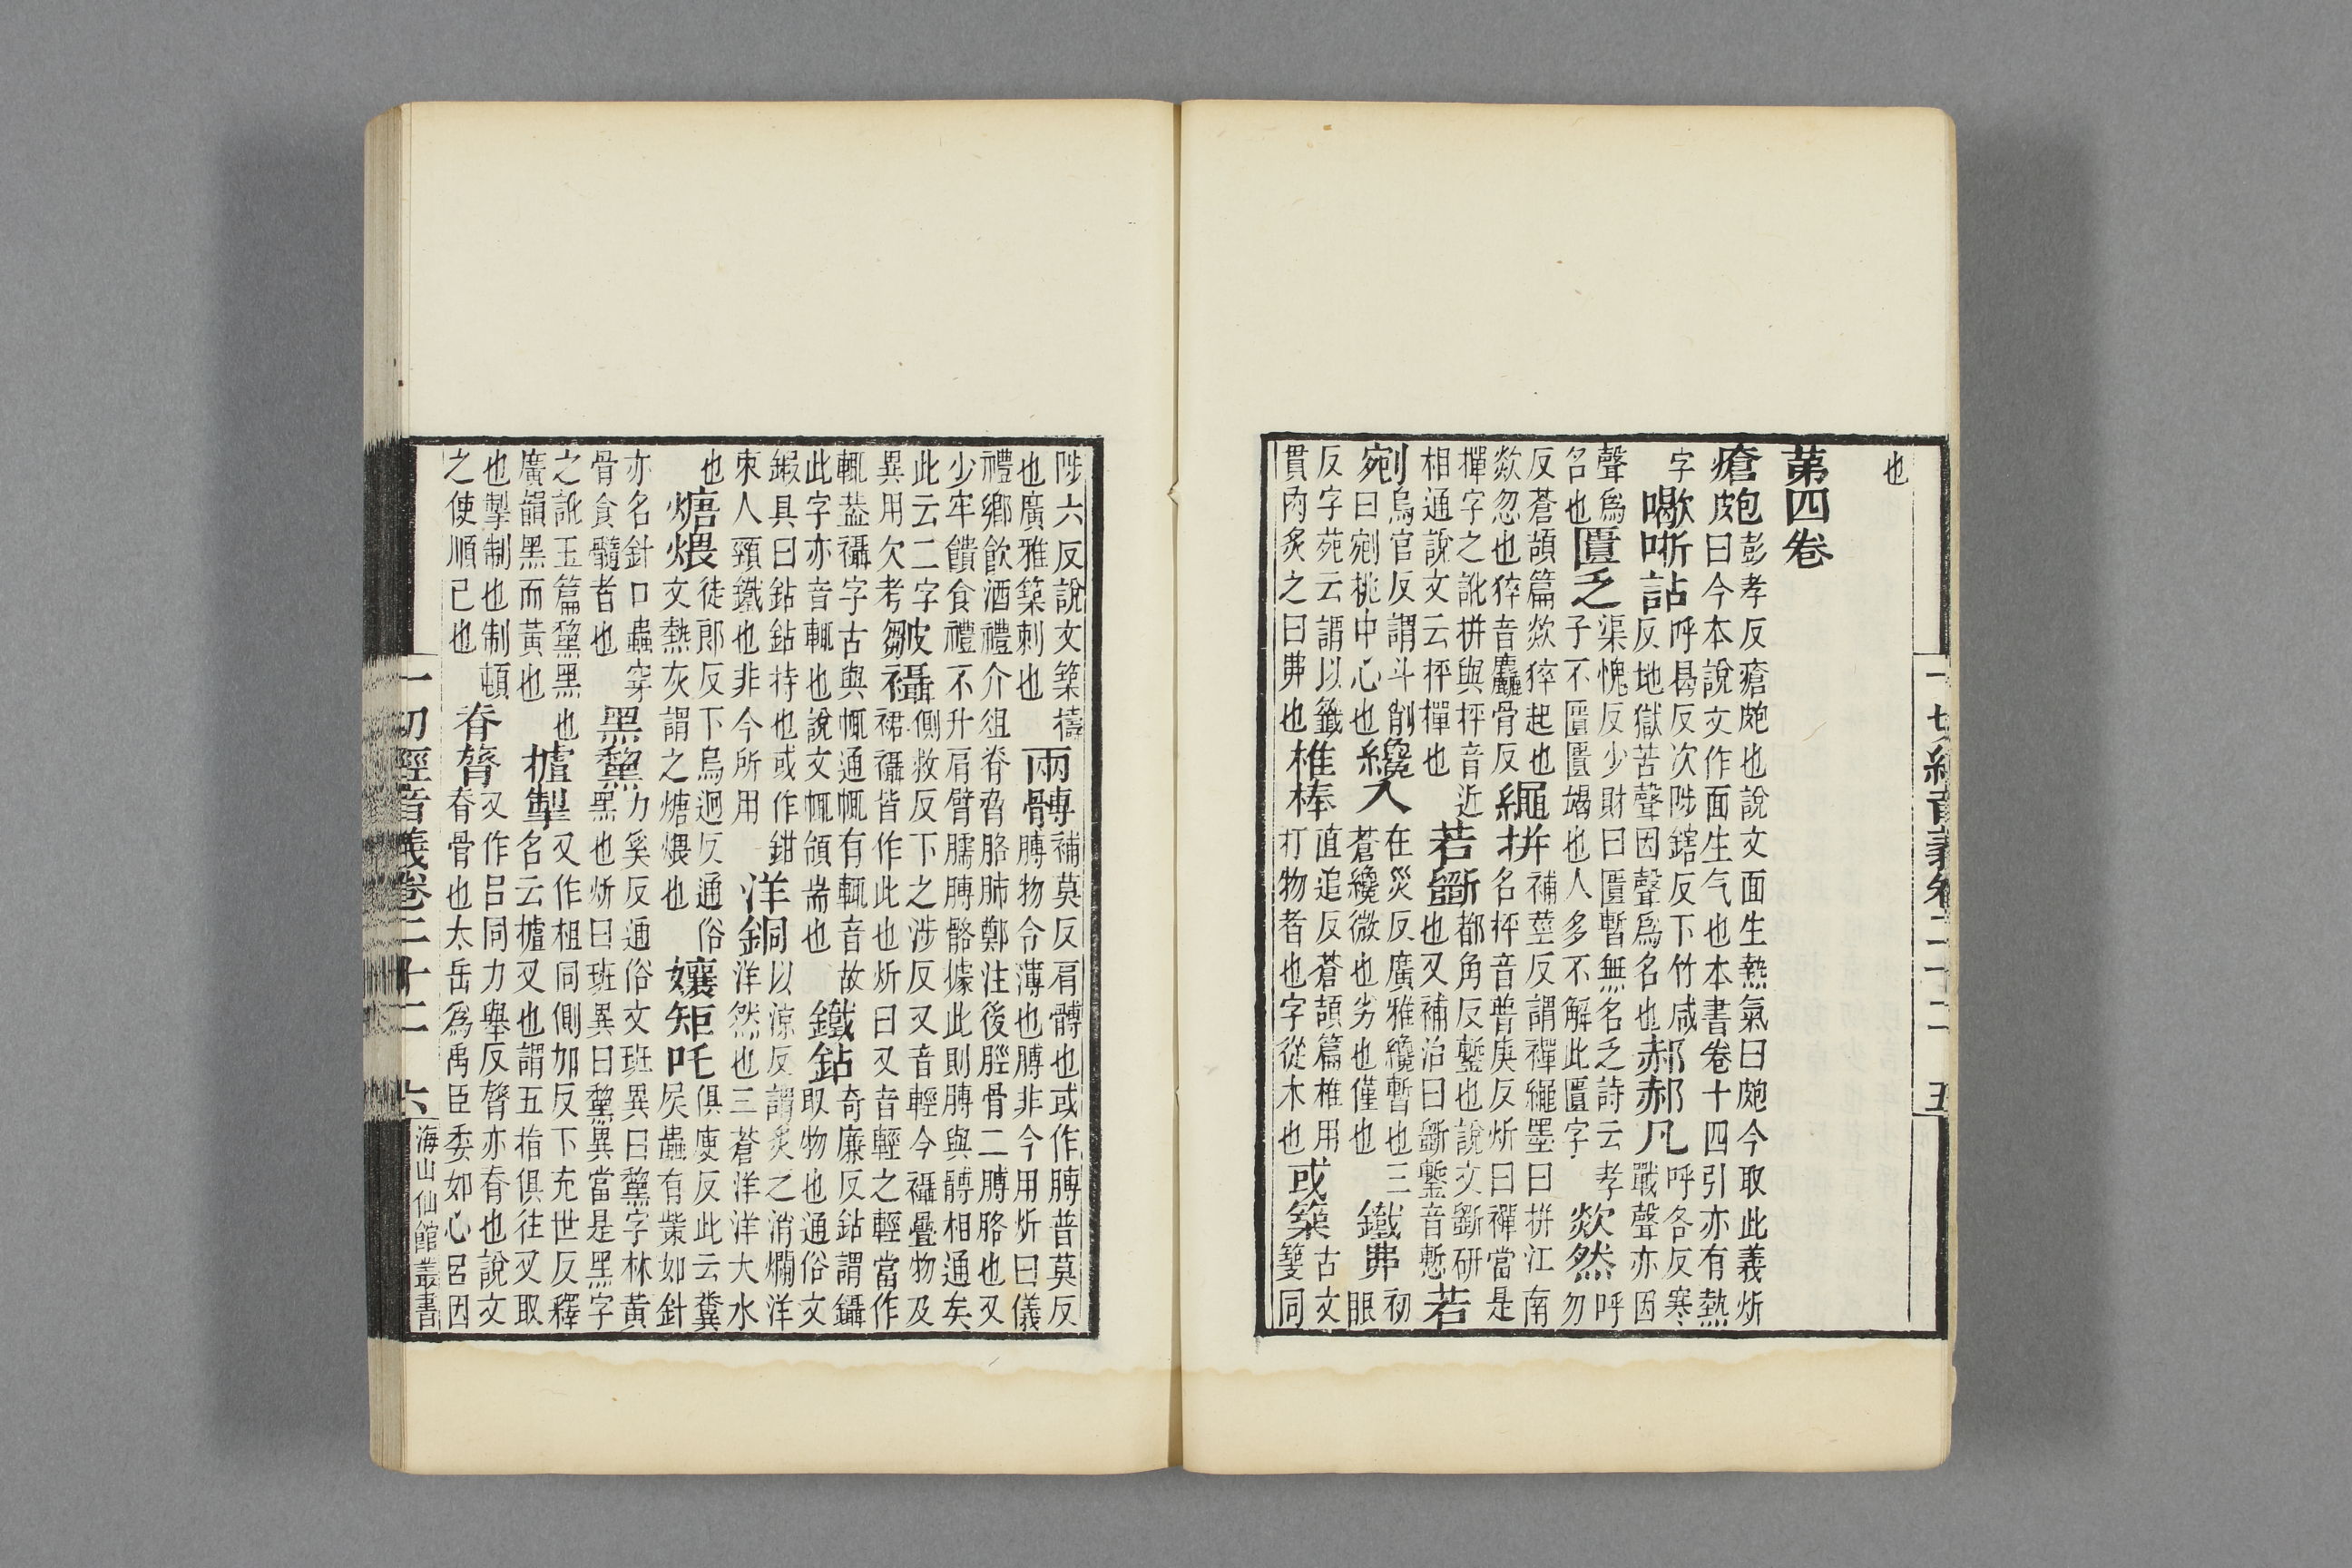 一切經音義卷二十二 五
也
第四卷
瘡皰 彭孝反瘡皰也說文面生熱氣曰皰今取此義炘
曰今本說文作面生气也本書卷十四引亦有熱
字 哳詀 呼曷反次陟鎋反下竹咸
反地獄苦聲因聲爲名也 郝郝凡 呼各反寒
戰聲亦因
聲爲
名也 匱乏 渠愧反少財曰匱暫無名乏詩云孝
子不匱匱竭也人多不解此匱字 欻然 呼
勿
反蒼頡篇欻猝起也
欻忽也猝音麤骨反 繩拼 補莖反謂襌繩墨曰拼江南
名枰音普庚反炘曰襌當是
撣字之訛拼與枰音近
相通說文云枰撣也 若斵 都角反鏨也說文斵研
也又補治曰斵鏨音慙 若
剜 烏官反謂斗削
曰剜挑中心也 纔入 在災反廣雅纔暫也三
蒼纔微也劣也僅也 鐵弗 初
眼
反字苑云謂以籤
貫肉炙之曰弗也 椎棒 直追反蒼頡篇椎用
打物者也字從木也 或築 古文
篫同
陟六反說文築擣
也廣雅築刺也 兩髆 補莫反肩髆也或作膊普莫反
膊物令薄也膊非今用炘曰儀
禮鄉飲酒禮介俎脊脅胳肺鄭注後脛骨二膊胳也又
少牢饋食禮不升肩臂臑膊骼據此則膊與髆相通矣
此云二字
異用欠考 皺襵 側救反下之涉反又音輕今襵疊物及
裙襵皆作此也炘曰又音輕之輕當作
輒葢襵字古與㡇通㡇有輒音故
此字亦音輒也說文㡇領耑也 鐵鉆 奇廉反鉆謂鑷
取物也通俗文
鍜具曰鉆鉆持也或作鉗
朿人頸鐵也非今所用 洋銅 以涼反謂炙之消爛洋
洋然也三蒼洋洋大水
也 煻煨 徒郎反下烏迴反通俗
文熱灰謂之煻煨也 孃矩吒 俱庾反此云糞
屎蟲有觜如針
亦名針口蟲穿
骨食髓者也 黑黧 力奚反通俗文班異曰黧字林黃
黑也炘曰班異曰黧異當是黑字
之訛玉篇黧黑也
廣韻黑而黃也 摣掣 又作柤同側加反下充世反釋
名云摣叉也謂五指俱往叉取
也掣制也制頓
之使順己也 脊膂 又作呂同力舉反膂亦脊也說文
脊骨也太岳爲禹臣委如心呂因
一切經音義卷二十二 六 海山仙館叢書